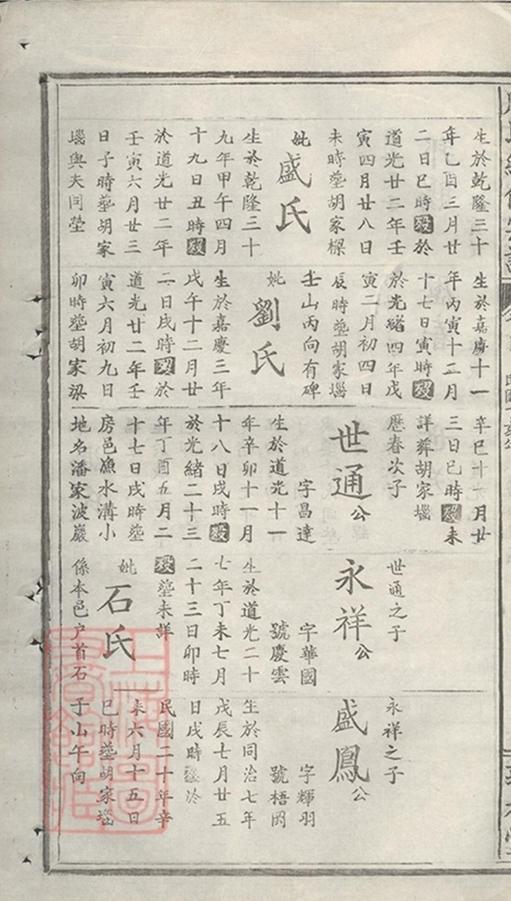 生於乾隆三十
年乙酉三月廿
二日巳時歿於
道光廿二年壬
寅四月廿八日
未時塋胡家樑
妣盛氏
生於乾隆三十
九年甲午四月
十九日丑時歿
於道光廿二年
壬寅六月廿三
日子時塋胡家
堖與夫同塋
生於嘉慶十一
年丙寅十二月
十七日寅時歿
於光緒四年戊
寅二月初四日
辰時塋胡家堖
壬山丙向有碑
妣劉氏
生於嘉慶三年
戊午十二月廿
二日戌時歿於
道光廿二年壬
寅六月初九日
卯時塋胡家梁
辛巳十月廿
三日巳時歿未
詳葬胡家堖
歷春次子
世通公
字昌達
生於道光十一
年辛卯十一月
十八日戌時歿
於光緒二十三
年丁酉五月二
十七日戌時塋
房邑漁水溝小
地名潘家波巖
世通之子
永祥公
字華國
號慶雲
生於道光二十
七年丁未七月
二十三日卯時
歿塋未詳
妣石氏
係本邑户首石
永祥之子
盛鳳公
字輝羽
號梧岡
生於同治七年
戊辰七月廿五
日戌時歿於
民國二十年辛
未六月十五日
巳時塋胡家堖
子山午向